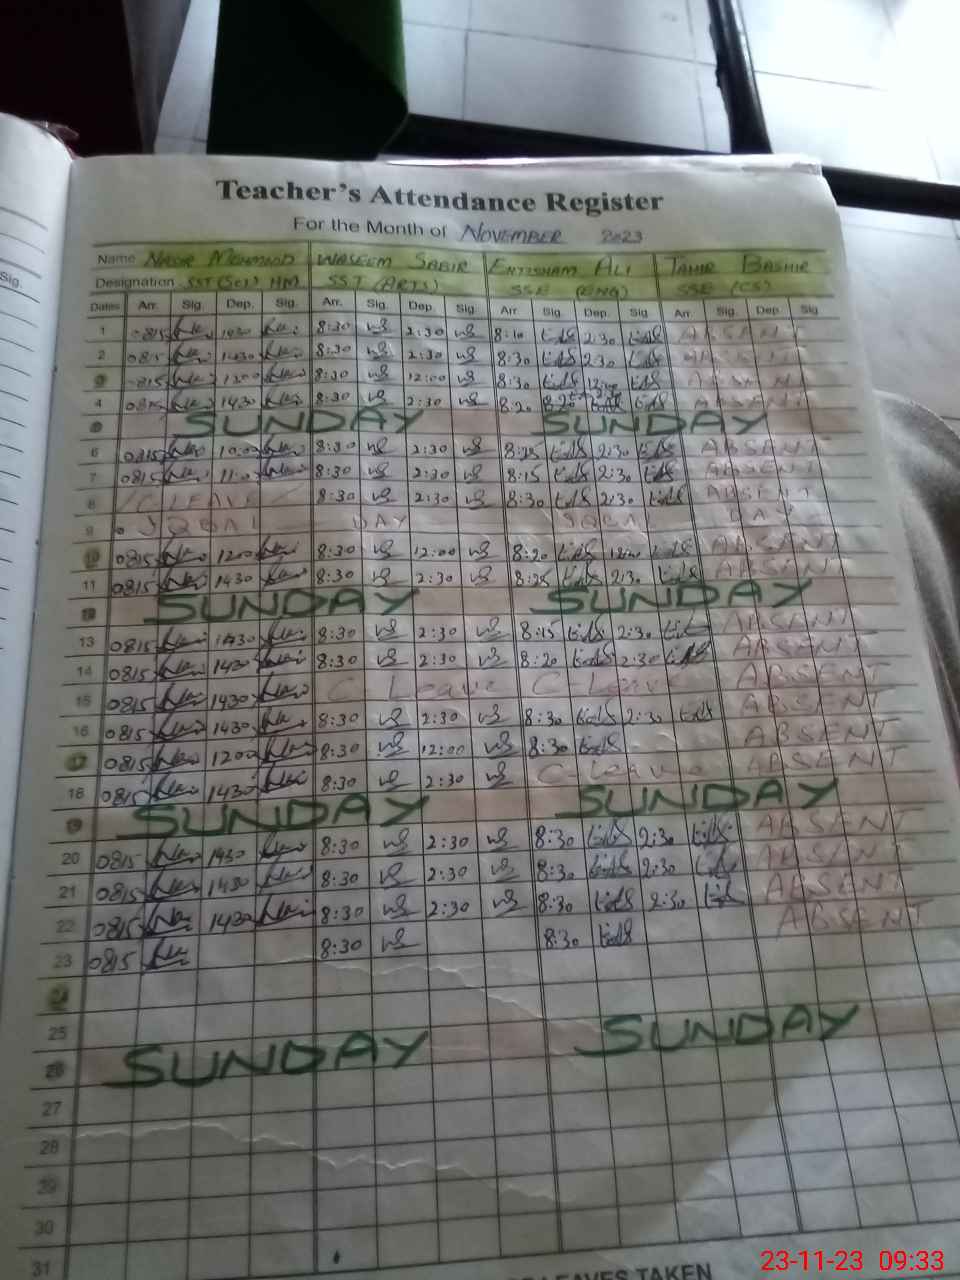 Sig.
Teacher's Attendance Register
For the Month of NOVEMBER 2023
Name MEHMOOD WASEEM SABIR EHTISHAM ALI TAHIR BASHIR
Designation SST (Sci) HM SST (ARTS) SSE (ENG) SSE (CS)
Dates Arr. Sig. Dep. Sig. Arr. Sig. Dep. Sig. Arr Sig. Dep. Sig Arr. Sig. Dep. Sig
1 0815 1430 8:30 2:30 8:10 2:30 ABSENT
2 0815 1430 8:30 2:30 8:30 2:30 ABSENT
3 0815 1200 8:30 12:00 8:30 12:00 ABSENT
4 0815 1430 8:30 2:30 8:20 ABSENT
SUNDAY SUNDAY
6 0815 8:30 2:30 8:25 2:30 ABSENT
7 0815 8:30 2:30 8:15 2:30 ABSENT
8 C-LEAVE 8:30 2:30 8:30 2:30 ABSENT
9 IQBAL DAY IQBAL DAY
10 0815 1200 8:30 12:00 8:20 12:00 ABSENT
11 0815 1430 8:30 2:30 8:25 2:30 ABSENT
12 SUNDAY SUNDAY
13 0815 1430 8:30 2:30 8:15 2:30 ABSENT
14 0815 1430 8:30 2:30 8:20 2:30 ABSENT
15 0815 1430 C-Leave C-Leave ABSENT
16 0815 1430 8:30 2:30 8:30 2:30 ABSENT
17 0815 1200 8:30 12:00 8:30 ABSENT
18 0815 1430 8:30 2:30 C-leave ABSENT
19 SUNDAY SUNDAY
20 0815 1430 8:30 2:30 8:30 2:30 ABSENT
21 0815 1430 8:30 2:30 8:30 2:30 ABSENT
22 0815 1430 8:30 2:30 8:30 2:30 ABSENT
23 0815 8:30 8:30 ABSENT
24
25
26 SUNDAY SUNDAY
27
28
29
30
31
LEAVES TAKEN
23-11-23 09:33